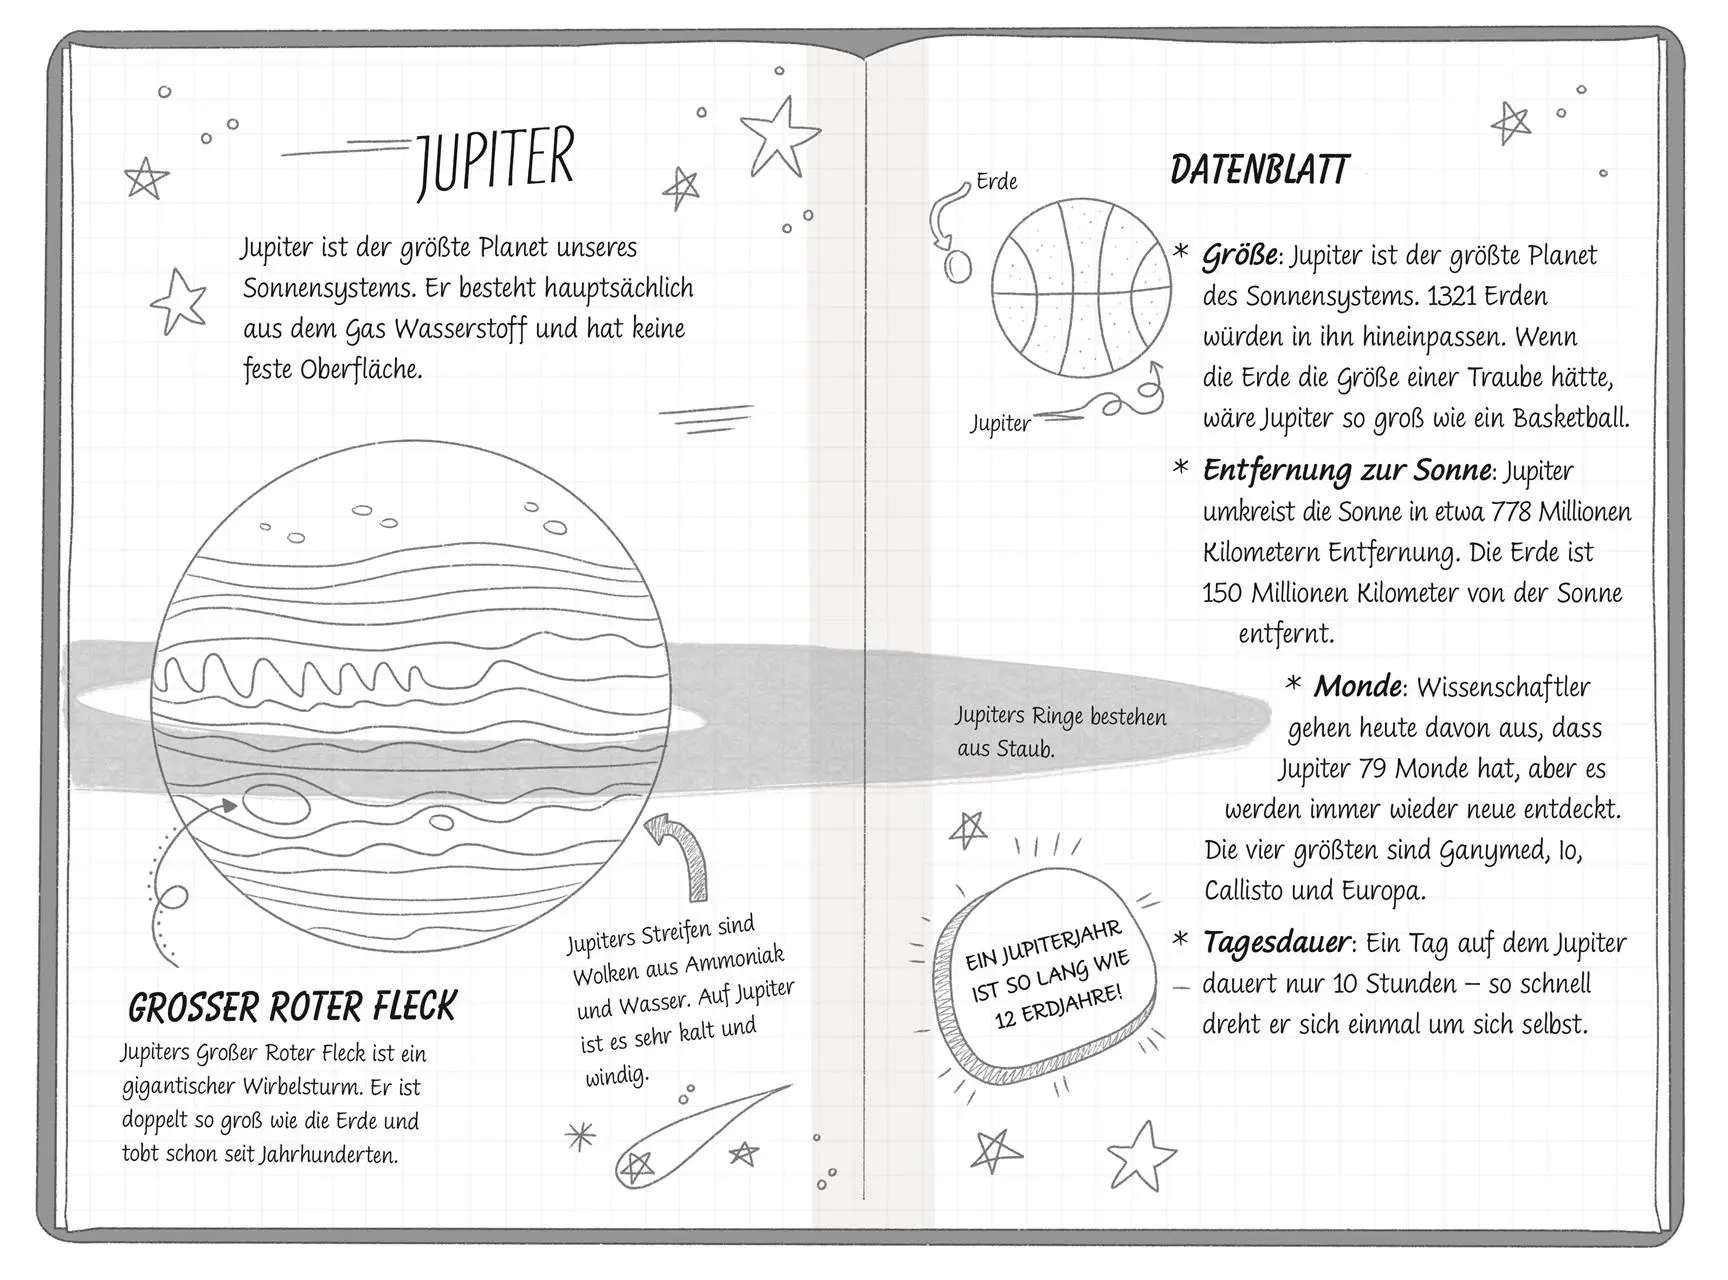 JUPITER
Jupiter ist der größte Planet unseres
Sonnensystems. Er besteht hauptsächlich
aus dem Gas Wasserstoff und hat keine
feste Oberfläche.
GROSSER ROTER FLECK
Jupiters Großer Roter Fleck ist ein
gigantischer Wirbelsturm. Er ist
doppelt so groß wie die Erde und
tobt schon seit Jahrhunderten.
Jupiters Streifen sind
Wolken aus Ammoniak
und Wasser. Auf Jupiter
ist es sehr kalt und
windig.
Erde
Jupiter
Jupiters Ringe bestehen
aus Staub.
EIN JUPITERJAHR
IST SO LANG WIE
12 ERDJAHRE!
DATENBLATT
* Größe: Jupiter ist der größte Planet
des Sonnensystems. 1321 Erden
würden in ihn hineinpassen. Wenn
die Erde die Größe einer Traube hätte,
wäre Jupiter so groß wie ein Basketball.
* Entfernung zur Sonne: Jupiter
umkreist die Sonne in etwa 778 Millionen
Kilometern Entfernung. Die Erde ist
150 Millionen Kilometer von der Sonne
entfernt.
* Monde: Wissenschaftler
gehen heute davon aus, dass
Jupiter 79 Monde hat, aber es
werden immer wieder neue entdeckt.
Die vier größten sind Ganymed, Io,
Callisto und Europa.
* Tagesdauer: Ein Tag auf dem Jupiter
dauert nur 10 Stunden – so schnell
dreht er sich einmal um sich selbst.